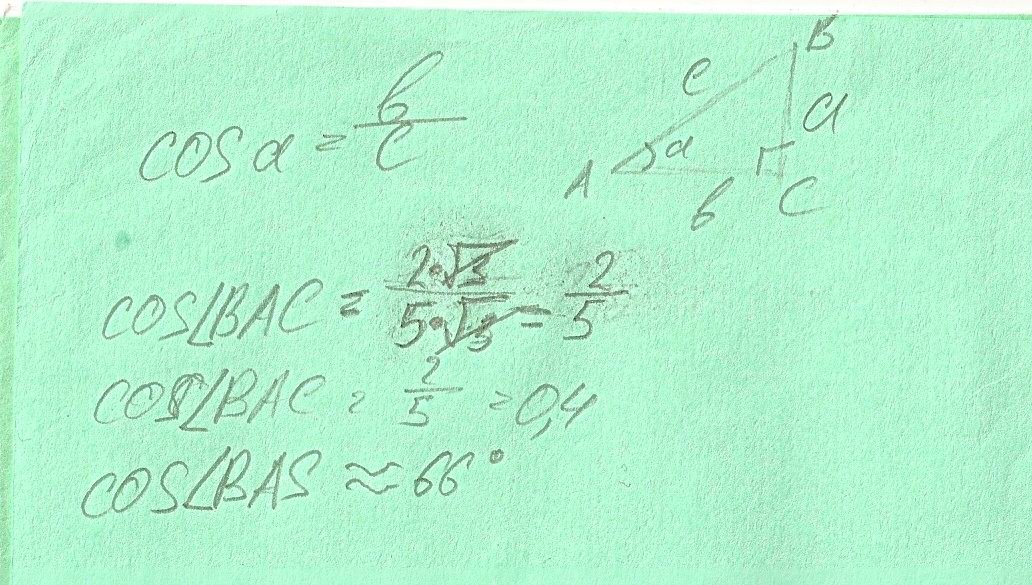 cos α = b/c
B
c
a
α
A
b
C
cos∠BAC = 2·√3/5·√3 = 2/5
cos∠BAC = 2/5 = 0,4
cos∠BAS ≈ 66°